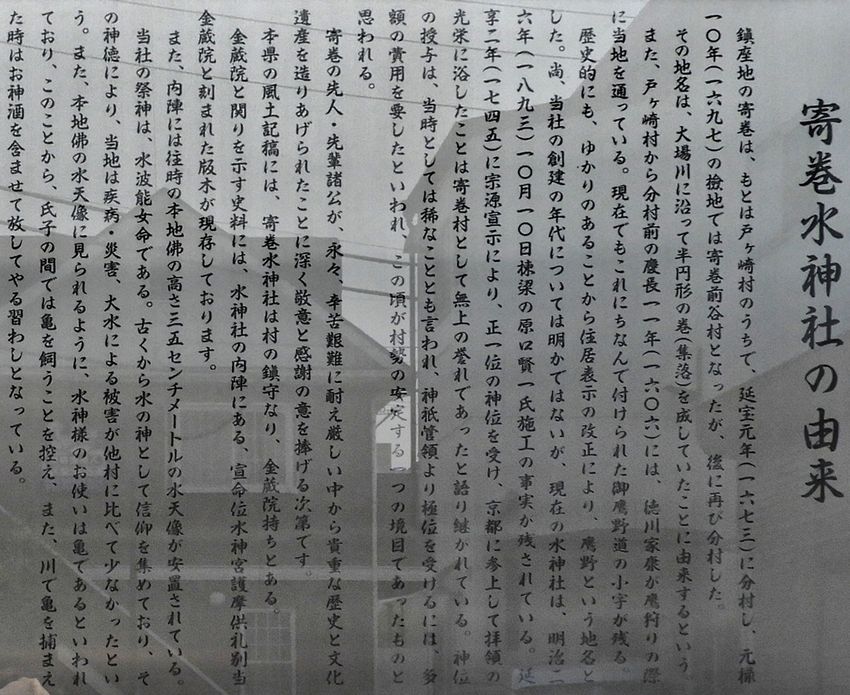 寄巻水神社の由来
鎮座地の寄巻は、もとは戸ヶ崎村のうちで、延宝元年(一六七三)に分村し、元禄
一〇年(一六九七)の検地では寄巻前谷村となったが、後に再び分村した。
その地名は、大場川に沿って半円形の巻(集落)を成していたことに由来するという。
また、戸ヶ崎村から分村前の慶長一一年(一六〇六)には、徳川家康が鷹狩りの際
に当地を通っている。現在でもこれにちなんで付けられた御鷹野道の小字が残る。
歴史的にも、ゆかりのあることから住居表示の改正により、鷹野という地名と
した。尚、当社の創建の年代については明かではないが、現在の水神社は、明治二
六年(一八九三)一〇月一〇日棟梁の原口賢一氏施工の事実が残されている。延
享二年(一七四五)に宗源宣示により、正一位の神位を受け、京都に参上して拝領の
光栄に浴したことは寄巻村として無上の誉れであったと語り継がれている。神位
の授与は、当時としては稀なこととも言われ、神祇管領より極位を受けるには、多
額の費用を要したといわれ、この頃が村勢の安定する一つの境目であったものと
思われる。
寄巻の先人・先輩諸公が、永々、辛苦艱難に耐え厳しい中から貴重な歴史と文化
遺産を造りあげられたことに深く敬意と感謝の意を捧げる次第です。
本県の風土記稿には、寄巻水神社は村の鎮守なり、金蔵院持ちとある。
金蔵院と関りを示す史料には、水神社の内陣にある、宣命位水神宮護摩供礼別当
金蔵院と刻まれた版木が現存しております。
また、内陣には往時の本地佛の高さ三五センチメートルの水天像が安置されている。
当社の祭神は、水波能女命である。古くから水の神として信仰を集めており、そ
の神徳により、当地は疾病・災害、大水による被害が他村に比べて少なかったとい
う。また、本地佛の水天像に見られるように、水神様のお使いは亀であるといわれ
ており、このことから、氏子の間では亀を飼うことを控え、また、川で亀を捕まえ
た時はお神酒を含ませて放してやる習わしとなっている。